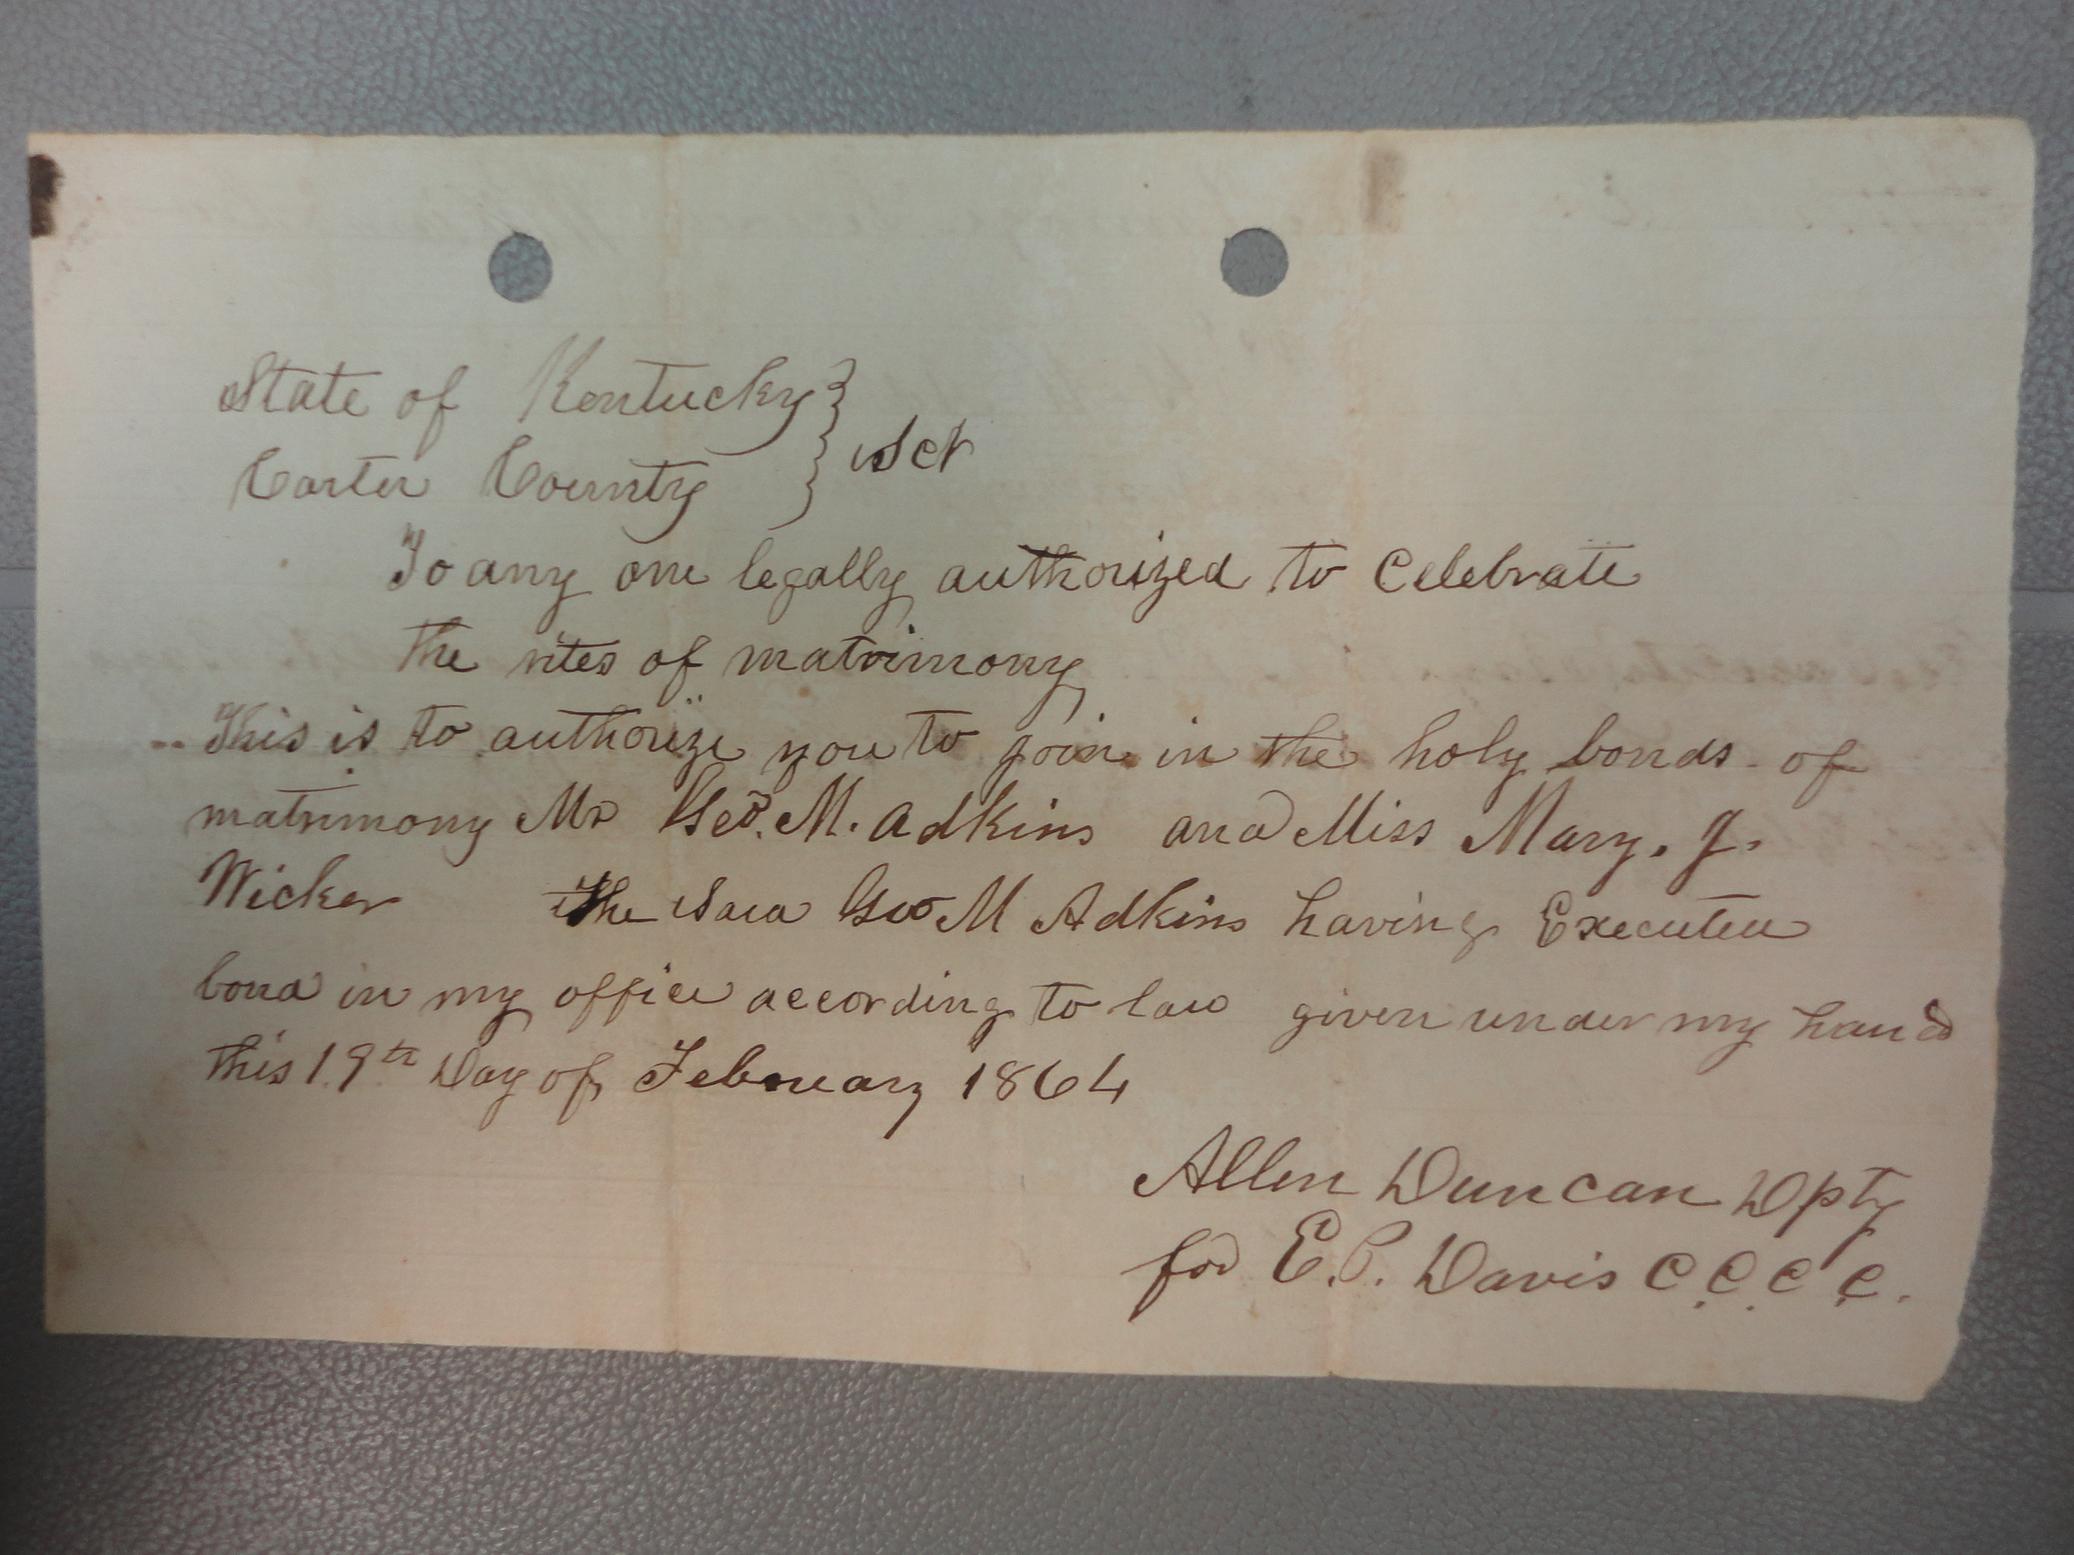 State of Kentucky }
Carter County } Sct
To any one legally authorized to Celebrate
the rites of matrimony
This is to authorize you to join in the holy bonds of
matrimony Mr Geo. M. Adkins and Miss Mary. J.
Wicker The Said Geo M Adkins having Executed
bond in my office according to law given under my hand
this 19th Day of February 1864
Allen Duncan Dpty
for E. P. Davis C. C. C. C.